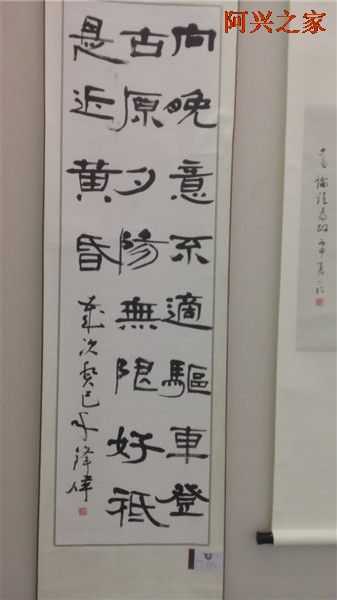 阿兴之家
向晚意不適驅車登
古原夕陽無限好祇
是近黄昏
歲次癸巳年